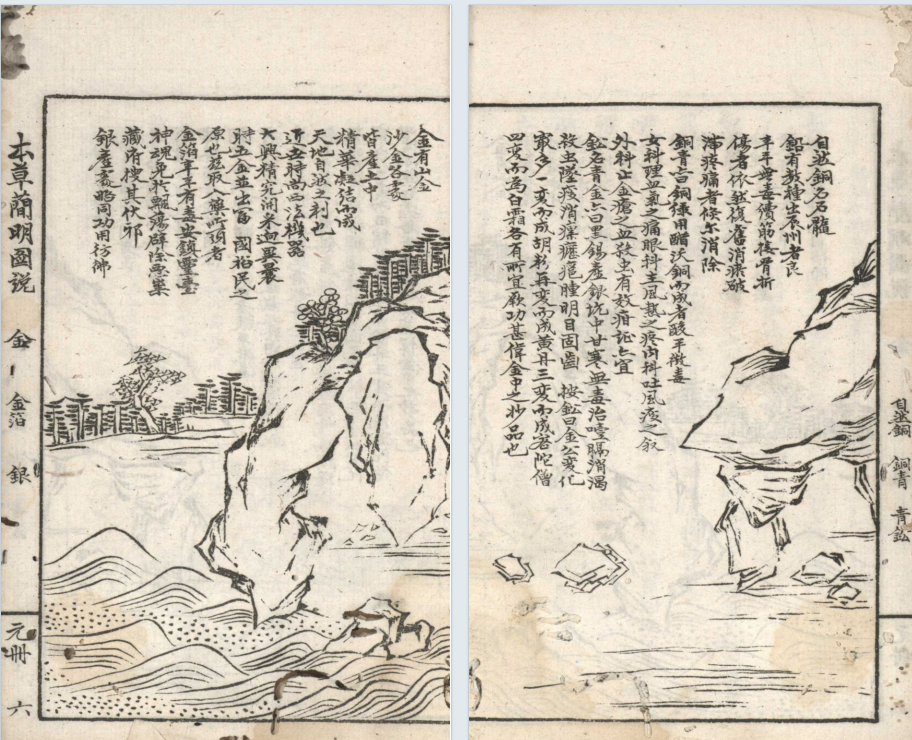 自然銅
銅青
青鈆
自然銅名石髓
鈆有數種生泉州者良
辛平無毒續筋接骨折
傷者依然復舊消瘀破
滯疼痛者倏尔消除
銅青言銅綠用醋沃銅而成者酸平微毒
女科理血氣之痛眼科主風熱之疼内科吐風痰之
外科止金瘡之血殺虫有效疳証亦宜
鈆名青金亦曰黑錫產銀坑中甘寒無毒治噎膈消渴
殺虫墜痰消瘰癧癰腫明目固齒 按鈆曰金公變化
最多一變而成胡粉再變而成黄丹三變而成密陀僧
四變而為白霜各有所宜厥功甚偉金中之妙品也
金有山金
沙金各處
皆產土中
精華凝結而成
天地自然之利也
近古時尚西法機器
大興精究淘采迥異曩
時五金並出富國裕民之
原也兹取入藥所須者
金箔辛平有毒安鎮靈臺
神魂免於飄蕩辟除惡祟
藏府搜其伏邪
銀產處略同功用彷彿
本草簡明圖説
金
金箔
銀
元冊
六